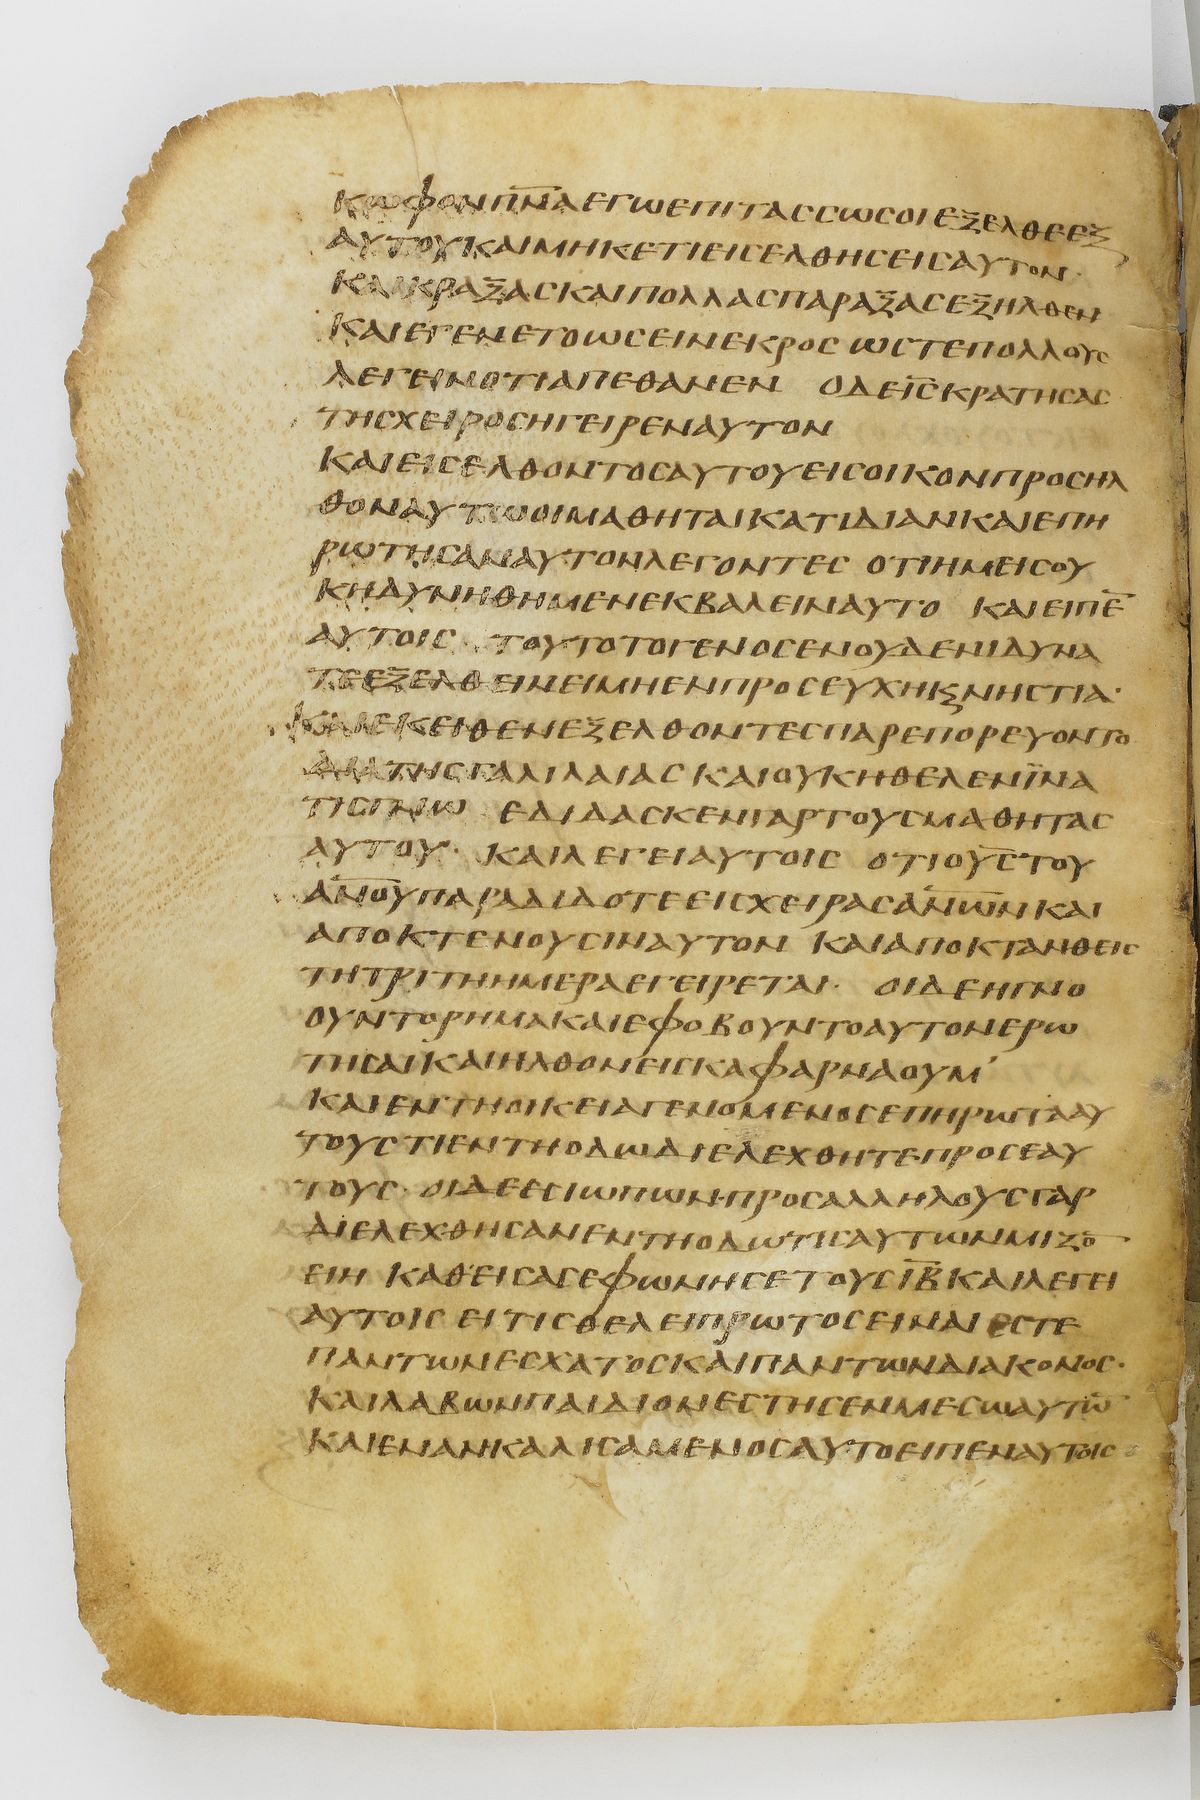 ΚΩΦΟΝΠΝΑΕΓΩΕΠΙΤΑССΩСΟΙΕΞΕΛΘΕΕΞ
ΑΥΤΟΥΚΑΙΜΗΚΕΤΙΕΙСΕΛΘΗСΕΙСΑΥΤΟΝ·
ΚΑΙΚΡΑΞΑСΚΑΙΠΟΛΛΑСΠΑΡΑΞΑСΕΞΗΛΘΕΝ
ΚΑΙΕΓΕΝΕΤΟΩСΕΙΝΕΚΡΟС ΩСΤΕΠΟΛΛΟΥС
ΛΕΓΕΙΝΟΤΙΑΠΕΘΑΝΕΝ ΟΔΕΙСΚΡΑΤΗСΑС
ΤΗСΧΕΙΡΟСΗΓΕΙΡΕΝΑΥΤΟΝ
ΚΑΙΕΙСΕΛΘΟΝΤΟСΑΥΤΟΥΕΙСΟΙΚΟΝΠΡΟСΗΛ
ΘΟΝΑΥΤΩΟΙΜΑΘΗΤΑΙΚΑΤΙΔΙΑΝΚΑΙΕΠΗ
ΡΩΤΗСΑΝΑΥΤΟΝΛΕΓΟΝΤΕС ΟΤΙΗΜΕΙСΟΥ
ΚΗΔΥΝΗΘΗΜΕΝΕΚΒΑΛΕΙΝΑΥΤΟ ΚΑΙΕΙΠΕ̅
ΑΥΤΟΙС ΤΟΥΤΟΤΟΓΕΝΟСΕΝΟΥΔΕΝΙΔΥΝΑ
ΤΕΕΞΕΛΘΕΙΝΕΙΜΗΕΝΠΡΟСΕΥΧΗΚϚΝΗСΤΙΑ·
ΚΑΙΕΚΕΙΘΕΝΕΞΕΛΘΟΝΤΕСΠΑΡΕΠΟΡΕΥΟΝΤΟ
ΔΙΑΤΗСΓΑΛΙΛΑΙΑС ΚΑΙΟΥΚΗΘΕΛΕΝΪΝΑ
ΤΙСΓΝΩ ΕΔΙΔΑСΚΕΝΓΑΡΤΟΥСΜΑΘΗΤΑС
ΑΥΤΟΥ· ΚΑΙΛΕΓΕΙΑΥΤΟΙС ΟΤΙΟΥСΤΟΥ
ΑΝΟΥΠΑΡΑΔΙΔΟΤΕΕΙСΧΕΙΡΑСΑΝΩΝΚΑΙ
ΑΠΟΚΤΕΝΟΥСΙΝΑΥΤΟΝ ΚΑΙΑΠΟΚΤΑΝΘΕΙС
ΤΗΤΡΙΤΗΗΜΕΡΑΕΓΕΙΡΕΤΑΙ· ΟΙΔΕΗΓΝΟ
ΟΥΝΤΟΡΗΜΑΚΑΙΕΦΟΒΟΥΝΤΟΑΥΤΟΝΕΡΩ
ΤΗСΑΙΚΑΙΗΛΘΟΝΕΙСΚΑΦΑΡΝΑΟΥΜ'
ΚΑΙΕΝΤΗΟΙΚΕΙΑΓΕΝΟΜΕΝΟСΕΠΗΡΩΤΑΑΥ
ΤΟΥС ΤΙΕΝΤΗΟΔΩΔΙΕΛΕΧΘΗΤΕΠΡΟСΕΑΥ
ΤΟΥС· ΟΙΔΕΕСΙΩΠΩΝ·ΠΡΟСΑΛΛΗΛΟΥСΓΑΡ
ΔΙΕΛΕΧΘΗСΑΝΕΝΤΗΟΔΩΤΙСΑΥΤΩΝΜΙΖΟ̅
ΕΙΗ ΚΑΘΕΙСΑСΕΦΩΝΗСΕΤΟΥСΙΒΚΑΙΛΕΓΕΙ
ΑΥΤΟΙС ΕΙΤΙСΘΕΛΕΙΠΡΩΤΟСΕΙΝΑΙ ΕСΤΕ
ΠΑΝΤΩΝΕСΧΑΤΟСΚΑΙΠΑΝΤΩΝΔΙΑΚΟΝΟС·
ΚΑΙΛΑΒΩΝΠΑΙΔΙΟΝΕСΤΗСΕΝΜΕСΩΑΥΤΩ̅
ΚΑΙΕΝΑΝΚΑΛΙСΑΜΕΝΟСΑΥΤΟΕΙΠΕΝΑΥΤΟΙС